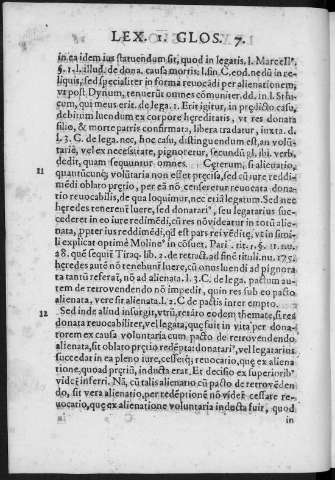 LEX. 1. GLOS. 7.
in ea idem ius statuendum sit, quod in legatis, l. Marcellꝰ.
§. 1. l. illud. de dona. causa mortis: l. fin. C. eod. nedū in re-
liquis, sed specialiter in forma reuocādi per alienationem,
vt post Dynum, tenuerūt omnes cōmuniter. dd. in l. Sthi-
cum, qui meus erit. de lega. 1. Erit igitur, in prędicto casu,
debitum luendum ex corpore hęreditatis, vt res donata
filio, & morte patris confirmata, libera tradatur, iuxta. d.
l. 3. C. de lega. nec, hoc casu, distinguendum est, an volū-
tariè, vel ex necessitate, pignoretur, secundū gl. ibi. verb.
dedit, quam sequuntur omnes. Cęterum, si alienatio,
11
quantūcunq; volūtaria non esset pręcisa, sed cū iure reddi-
mēdi oblato pręrio, per eā nō censeretur reuocata dona-
tio reuocabilis, de qua loquimur, nec etiā legatum. Sed nec
hęredes tenerent luere, sed donatariꝰ, seu legatarius suc-
cederet in eo iure redimēdi, cū res nō videatur in totū alie-
nata, ꝓpter ius redimēdi, qđ est pars rei vēditę, vt in simi-
li explicat optimè Molineꝰ in cōsuet. Pari. tit. 1. §. 11. nu.
a 8. quē sequit̄ Tiraq. lib. 2. de retract. ad finē tituli. nu. 175.
hęredes autē nō tenebunt̄ luere, cū onus luendi ad pignora
ta tantū referat̄, nō ad alienata. l. 3. C. de lega. pactum au-
tem de retrovendendo nō impedit, quin res sub eo pacto
alienata, verè sit alienata. l. 2. C de pactis inter empto.
12
Sed inde aliud insurgit, vtrū, retrāto eodem themate, si res
donata reuocabiliter, vel legata, quę fuit in vita per dona-
torem ex causa voluntaria cum pacto de retrovendendo
alienata, sit oblato prętio redēpta: donatariꝰ, vel legatarius
succedat in ea pleno iure, cesseritq; reuocatio, quę ex aliena
tione, quoad pręriū, inducta erat. Et decisio ex superiorib'
videt̄ inferri. Nā, cū talis alienatio cū pacto de retrovēden
do, sit vera alienatio, per redēptionē nō videt̄ cessare re-
uocatio, quę ex alienatione voluntaria inducta fuit, quod
in